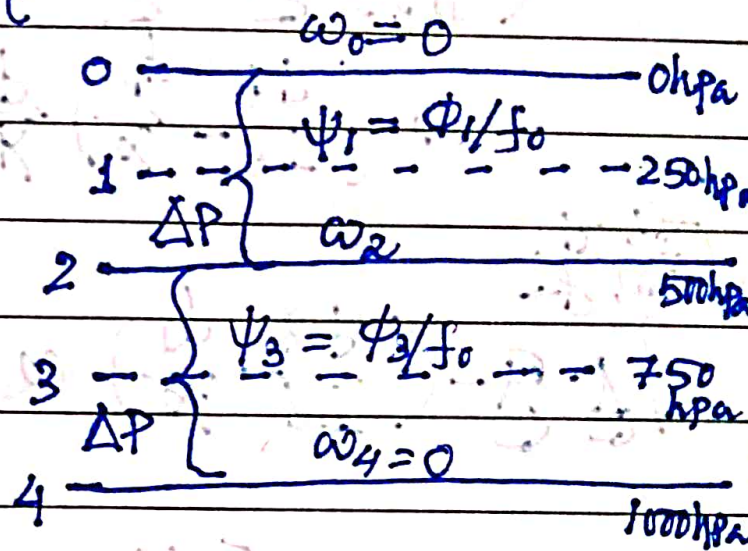 ω₀ = 0
0 0hpa
ψ₁ = Φ₁/f₀
1 250hpa
ΔP ω₂
2 500hpa
ψ₃ = Φ₃/f₀
3 750
hpa
ΔP ω₄=0
4 1000hpa